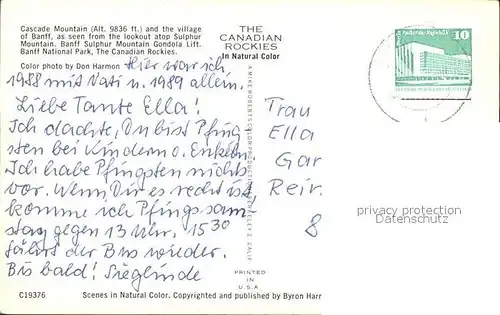 Cascade Mountain (Alt. 9836 ft.) and the village
of Banff, as seen from the lookout atop Sulphur
Mountain. Banff Sulphur Mountain Gondola Lift.
Banff National Park, The Canadian Rockies.
Color photo by Don Harmon
THE
CANADIAN
ROCKIES
In Natural Color
Hier war ich
1988 mit Vati u. 1989 allein.
Liebe Tante Ella!
Ich dachte, Du bist Pfing
sten bei Kindern o. Enkeln.
Ich habe Pfingsten nichts
vor. Wenn Dir es recht ist,
komme ich Pfingssams
tag gegen 13 Uhr. 15 30
fährt der Bus wieder.
Bis bald! Sieglinde
A MIKE ROBERTS COLOR PRODUCTION BERKELEY 2 CALIF
PRINTED
IN
U.S.A.
10
Frau
Ella
Gar
Reir
8
privacy protection
Datenschutz
C19376
Scenes in Natural Color. Copyrighted and published by Byron Harr